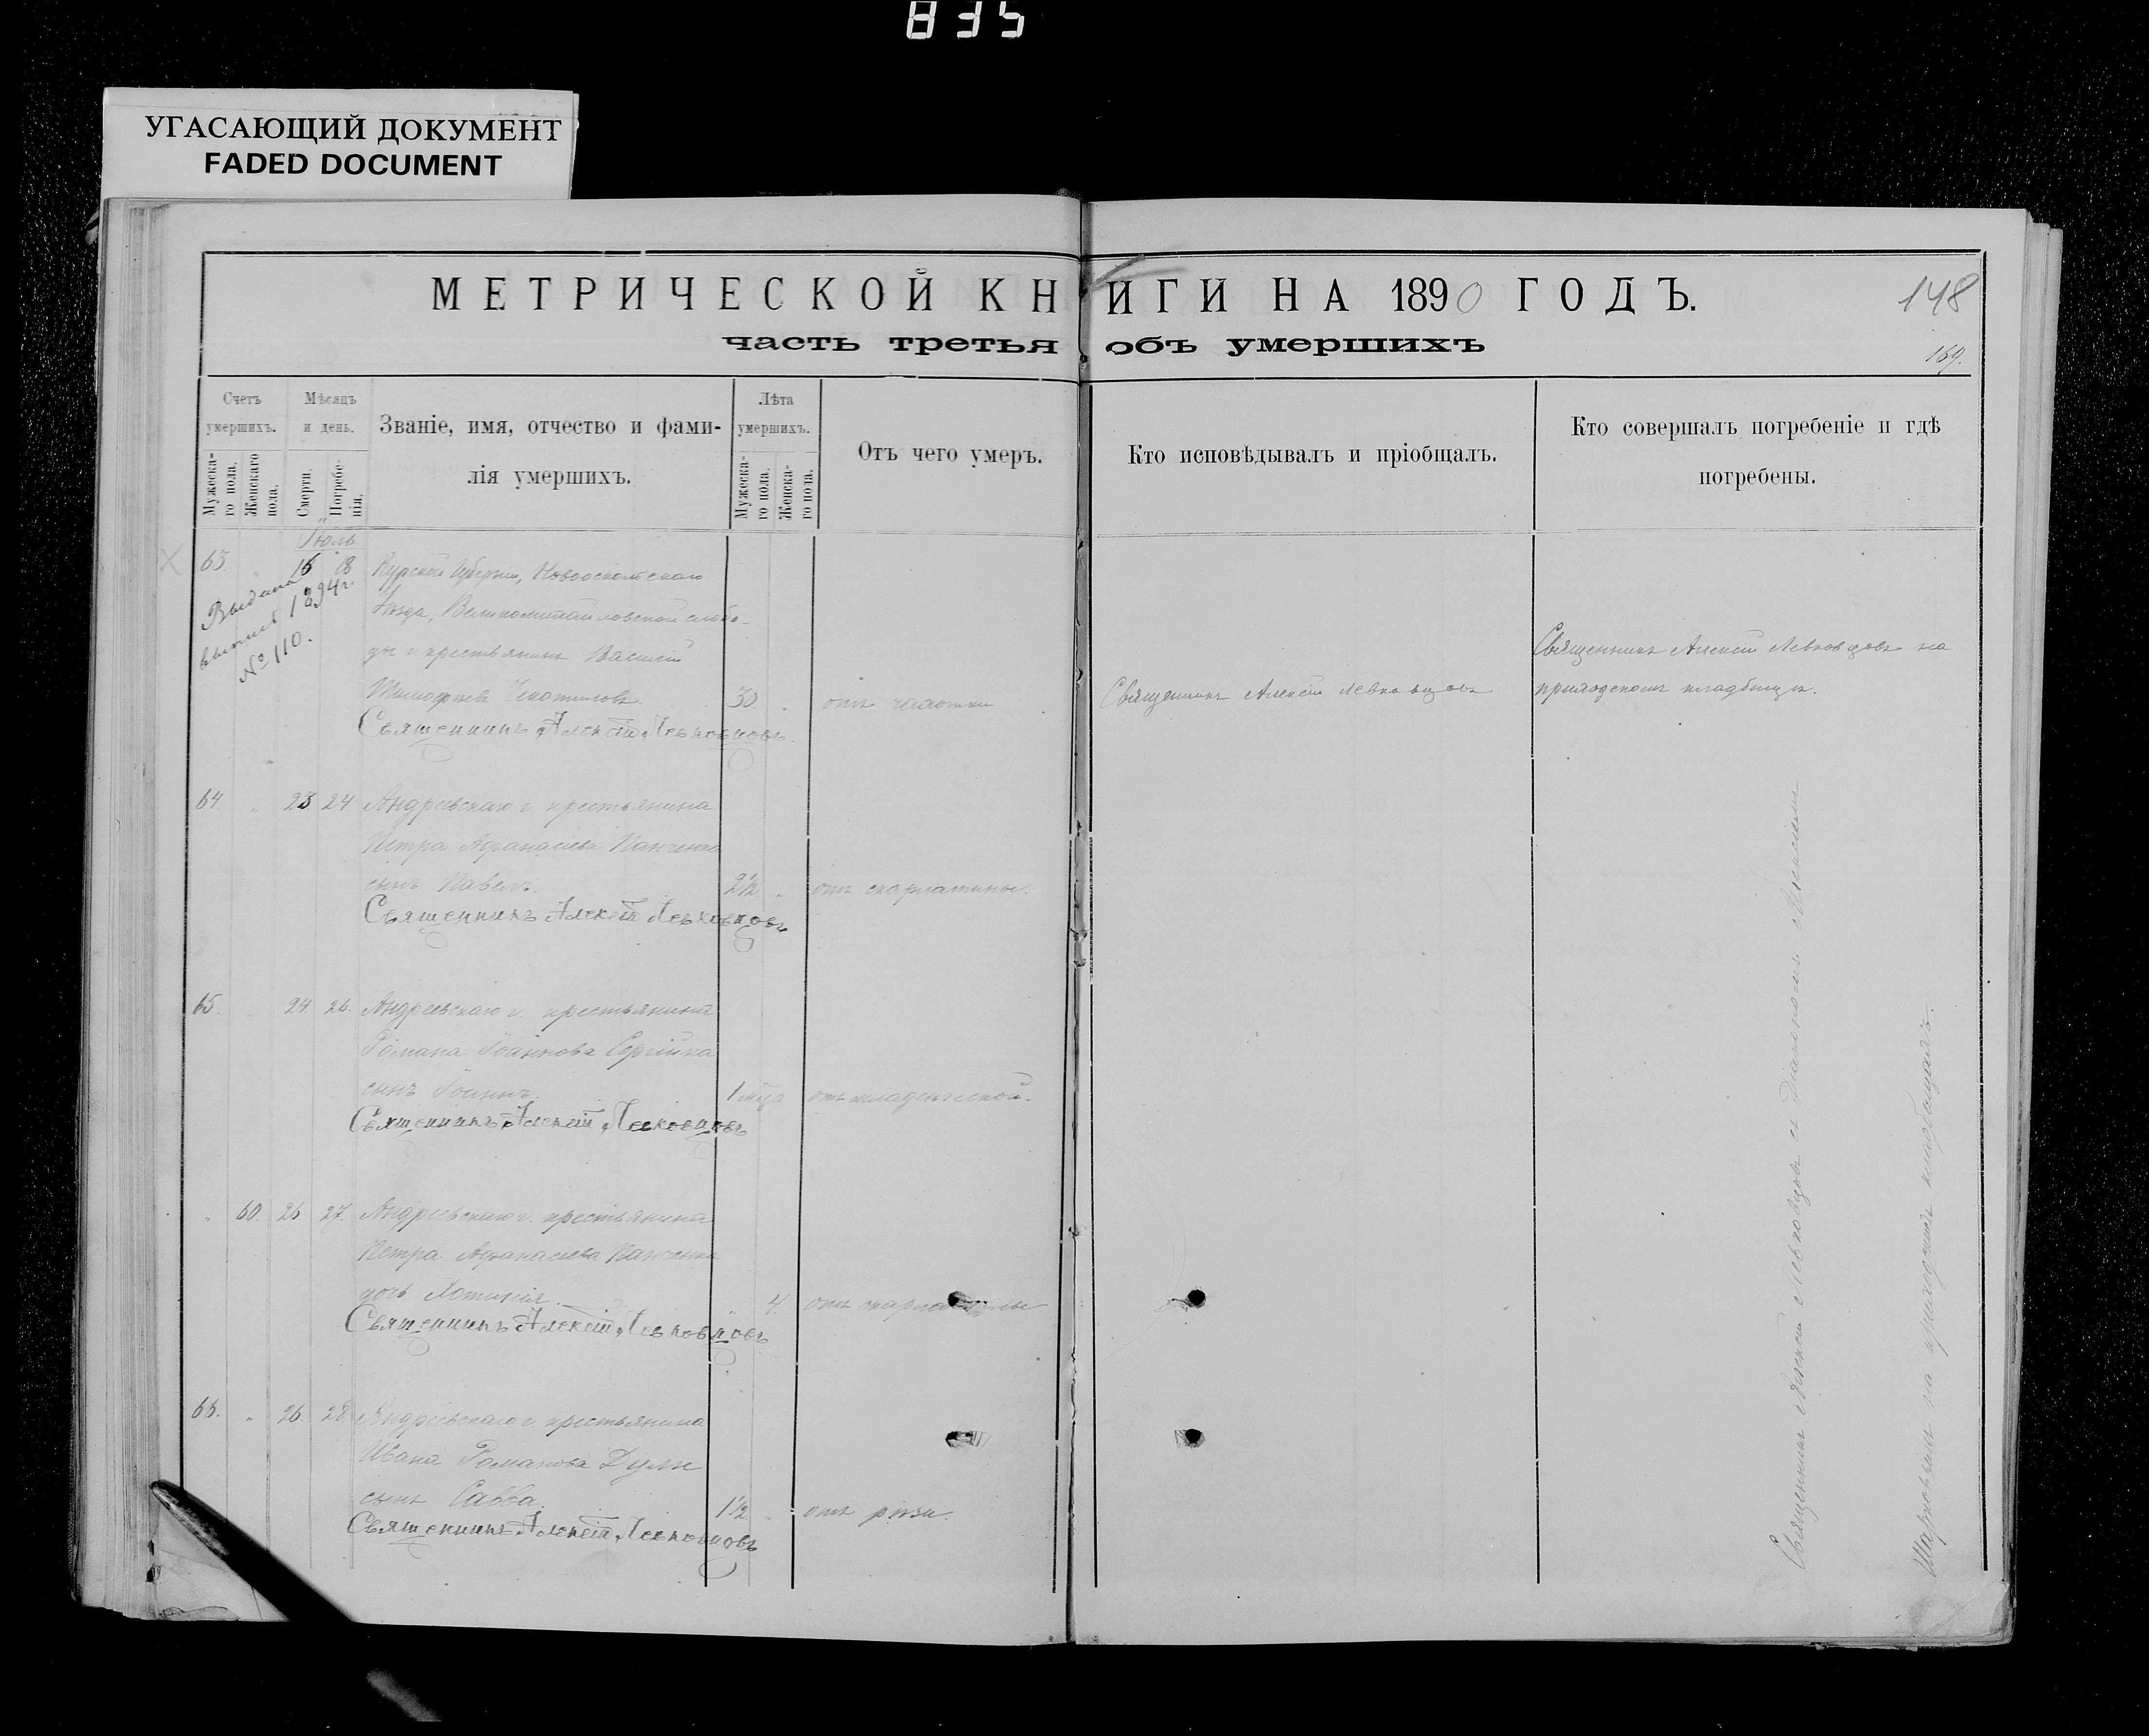 835
УГАСАЮЩИЙ ДОКУМЕНТ
FADED DOCUMENT
МЕТРИЧЕСКОЙ КНИГИ НА 1890 ГОДЪ.
148
часть третья объ умершихъ
169.
Счетъ умершихъ.
Мужескаго пола.
Женскаго пола.
Мѣсяцъ и день.
Смерти.
Погребенія.
Званіе, имя, отчество и фамилія умершихъ.
Лѣта умершихъ.
Мужескаго пола.
Женскаго пола.
Отъ чего умеръ.
Кто исповѣдывалъ и пріобщалъ.
Кто совершалъ погребеніе и гдѣ
погребены.
Іюль
63 " 16 18 Курской Губерніи, Новооскольскаго
Выдана
1894 г.
№ 110.
Уѣзда, Великомихайловской слобо-
ды крестьянинъ Василій
30 " отъ чахотки
Священникъ Алексій Левковцовъ
Священникъ Алексій Левковцовъ на
приходскомъ кладбищѣ.
Священникъ Алексій Левковцовъ
64 " 23 24 Андреевскаго г. крестьянина
Петра Афанасіева Панченка
сынъ Павелъ. 2½ " отъ скарлатины.
Священникъ Алексій Левковцовъ
65. 24 26. Андреевскаго г. крестьянина
Романа Іоаннова Сергійка
сынъ Іоаннъ. 1 отъ младенческой.
Священникъ Алексій Левковцовъ
" 60. 26 27. Андреевскаго г. крестьянина
Петра Афанасіева Панченка
дочь " 4. отъ скарлатины
Священникъ Алексій Левковцовъ
66. " 26. 28. Андреевскаго г. крестьянина
Ивана Романова
сынъ Савва. 1½ " отъ рѣзи.
Священникъ Алексій Левковцовъ
Священникъ Алексій Левковцовъ съ Діакономъ
на приходскомъ кладбищахъ.